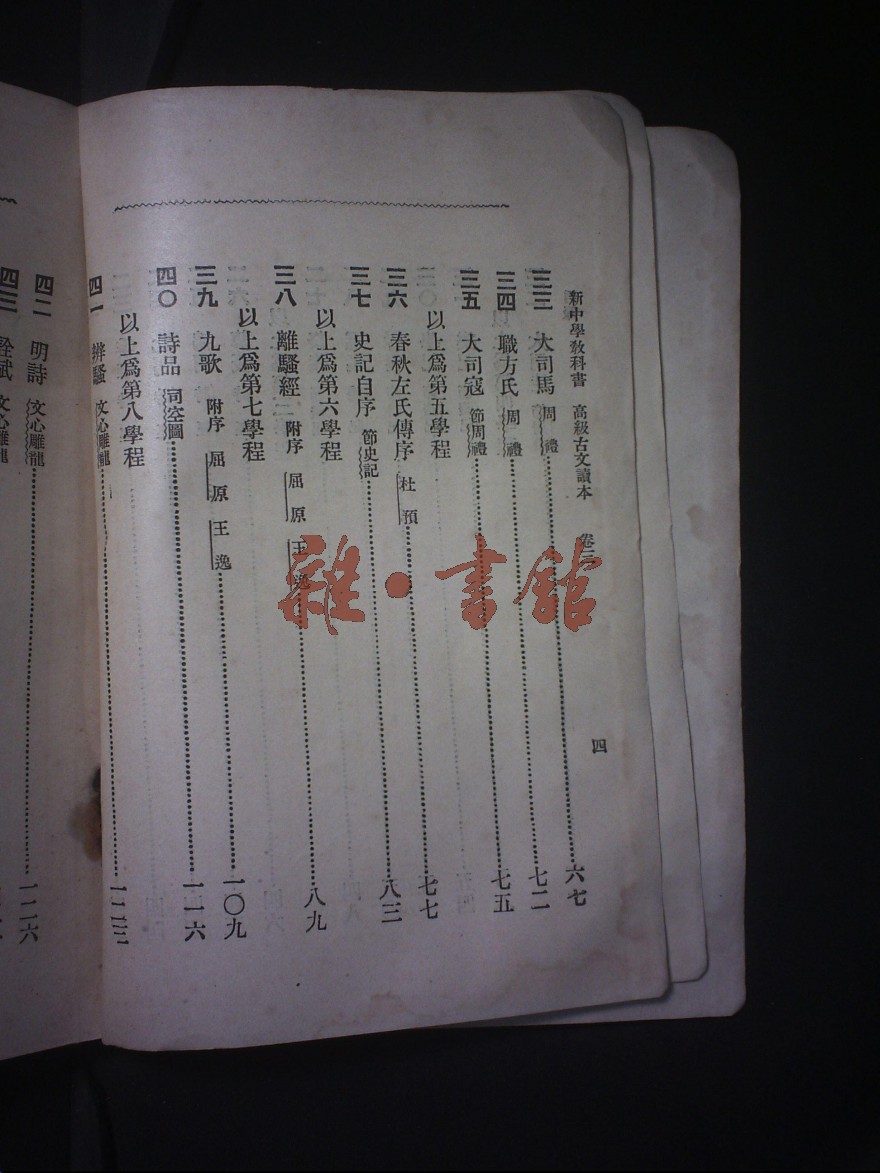 新中學教科書 高級古文讀本 卷 四
三三 大司馬 周禮 六七
三四 職方氏 周禮 七二
三五 大司寇 節周禮 七五
以上爲第五學程
三六 春秋左氏傳序 杜預 七七
三七 史記自序 節史記 八三
以上爲第六學程
三八 離騷經 附序 屈原 王逸 八九
以上爲第七學程
三九 九歌 附序 屈原 王逸 一〇九
四〇 詩品 司空圖 一一六
以上爲第八學程
四一 辨騷 文心雕龍 一二三
四二 明詩 文心雕龍 一二六
四三 詮賦 文心雕龍
雜·書館